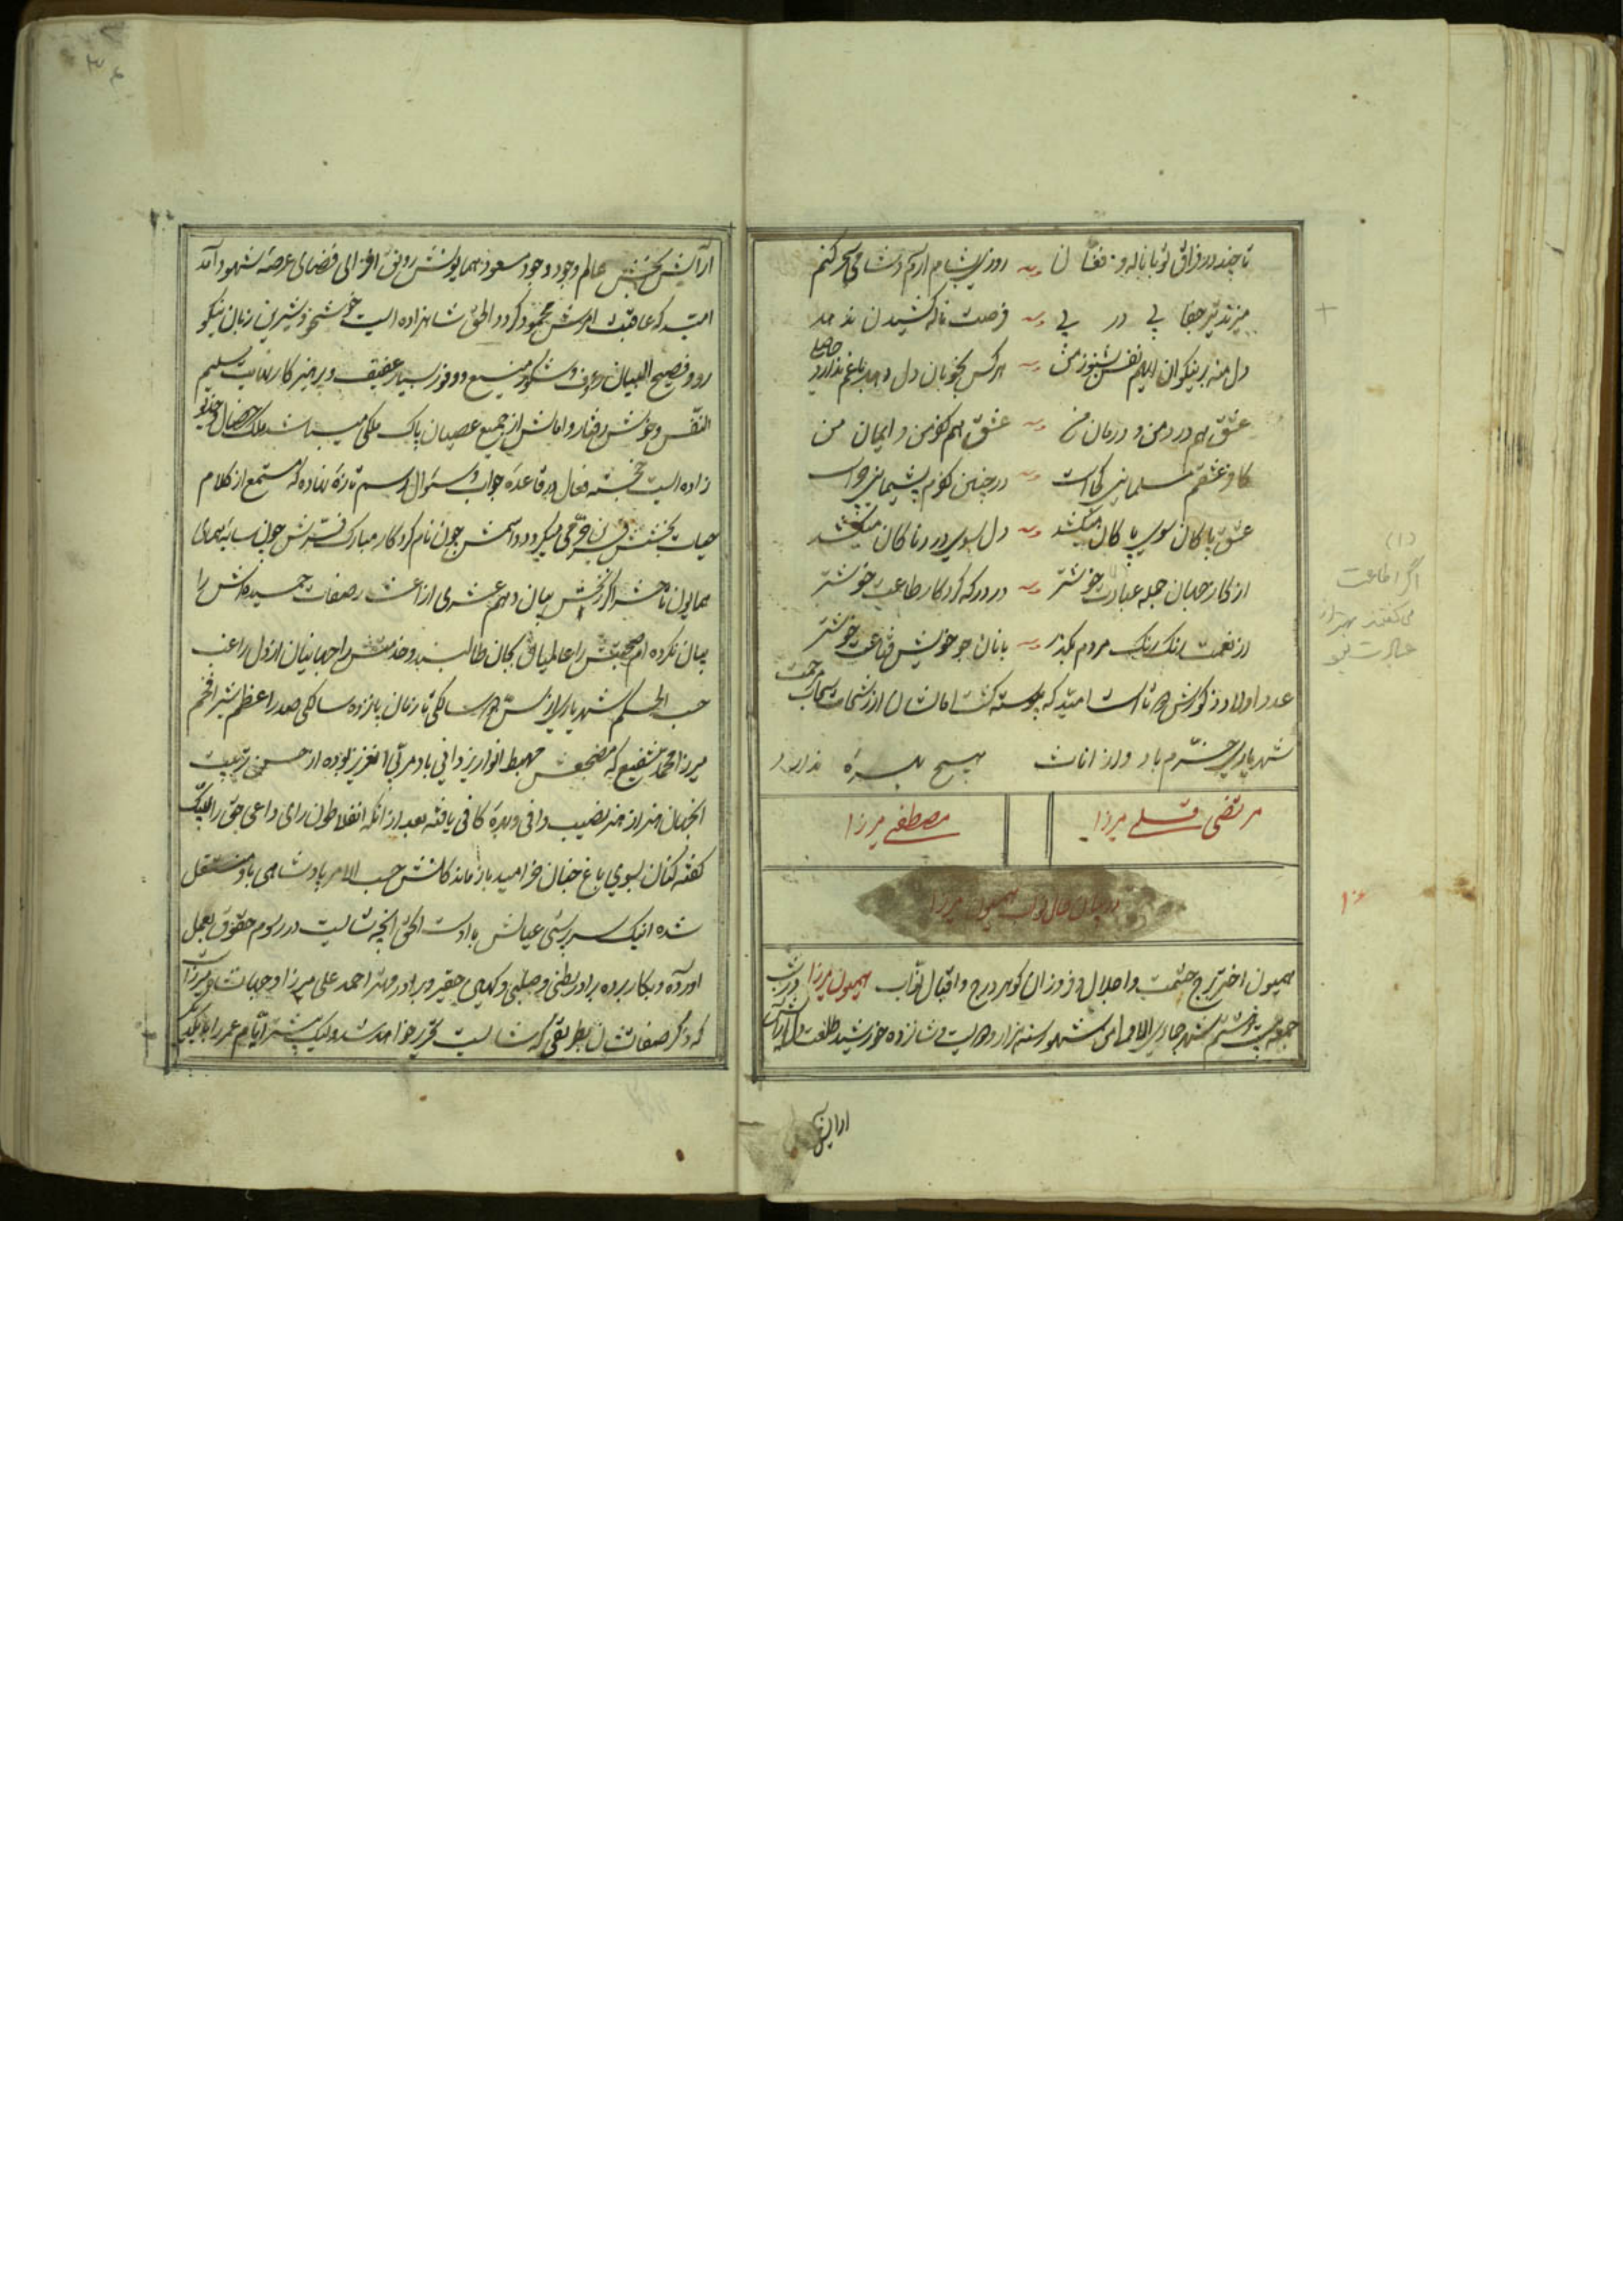 تا چند در فراق تو با ناله و فغان روزی بشام ارم و شامی سحر کنم
میزند تیر جفا پی در پی فرصت ناله کشیدن ندهد
دل منه بر نیکوان ایلیم نفس بشنو ز من هر کس بخوبان دل دهد غم ندارد حاصلی
عشق هم درد من و درمان من عشق هم کفر من و ایمان من
کافر عشقم مسلمانی کجاست در چنین کفرم پشیمانی چراست
عشق پاکان سوی پاکان میکشد دل بسوی دردناکان میکشد
از کار جهان جمله عبادت خوشتر در درکه کردکار طاعت خوشتر
از نعمت رنک رنک مردم بکذر با نان جو خویش قناعت خوشتر
عدد اولاد ذکورش دو تا است امید که پیوسته کشت امالشان از رشحات سحاب رحمت
شهریاری خرم باد و از اناث هیچ بهره ندارد
مرتضی قلی میرزا
مصطفی میرزا
در بیان حال نواب همیون میرزا
همیون اختر برج حشمت و اجلال و فروزان کوهر درج و اقبال نواب همیون میرزا در شب
جمعه بیست و ششم شهر جمادی الاولی من شهور سنه هزار و دویست و شانزده خورشید طلعت دل ارایش
ارایش
(۱)
اگر اطاعت
می گفتند بهتر از
عبادت بود
۱۰۶
ارایش بخش عالم وجود و وجود مسعود همایونش رونق افزای فضای عرصه شهود آمد
امید که عاقبت امرش محمود کردد الحق شاهزاده ایست خوشخو و شیرین زبان نیکو
رو و فصیح البیان رؤف و شکور منیع و وفور بسیار عفیف و پرهیزکار بغایت سلیم
النفس و خوش رفتار و امالش از جمیع عصیان پاک ملکی میباشد ملک خصال و خدیو
زاده ایست خجسته فعال در قاعده جواب و سئوال رسم تازه نهاده که مستمع از کلام
حیات بخشش فرحی میکیرد و اسمش چون نام کردکار مبارک فرش چون سایه همای
همایون تا حشر اگر بخش بیان دهم عشری از اعشار صفات حمیده اش را
بیان نکرده ام صحبتش را عالمیان بجان طالبند و خدمتش را جهانیان از دل راغب
حسب الحکم شهریاری از سن دو سالکی تا زمان پانزده سالکی صدر اعظم مشیر افخم
میرزا محمد شفیع که مضجعش مهبط انوار یزدانی باد مربی آنعزیز بوده از حسن تربیت
انجهان هنر از هنر نصیب وافی و بهره کافی یافته بعد از انکه انفلاطون رای داعی حق را لبیک
کفته کنان بسوی باغ جنان خرامید بازماندکانش حسب الامر پادشاهی باو منتقل
شده اینک سرپرستی عیالش با اوست الحق انچه شایست در رسوم حقوق بعمل
اورده و بکار برده برادر بطنی و صلبی و کهین حقیر و برادر مهتر احمد علی میرزا و جهانشاه میرزاست
که ذکر صفاتشان بطریقی که شایست تحریر خواهد شد ولیک بیشتر ایام عمر را با یکدیگر